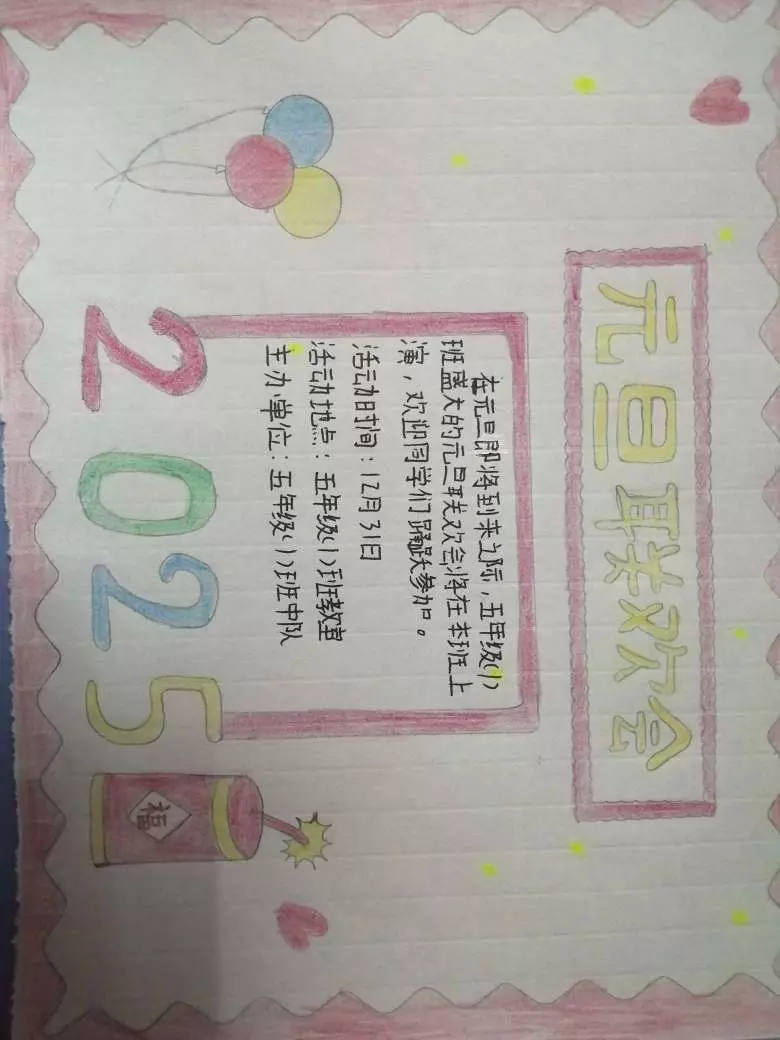 元旦联欢会
在元旦即将到来之际，五年级(1)
班盛大的元旦联欢会将在本班上
演，欢迎同学们踊跃参加。
活动时间：12月31日
活动地点：五年级(1)班教室
主办单位：五年级(1)班中队
2025
福